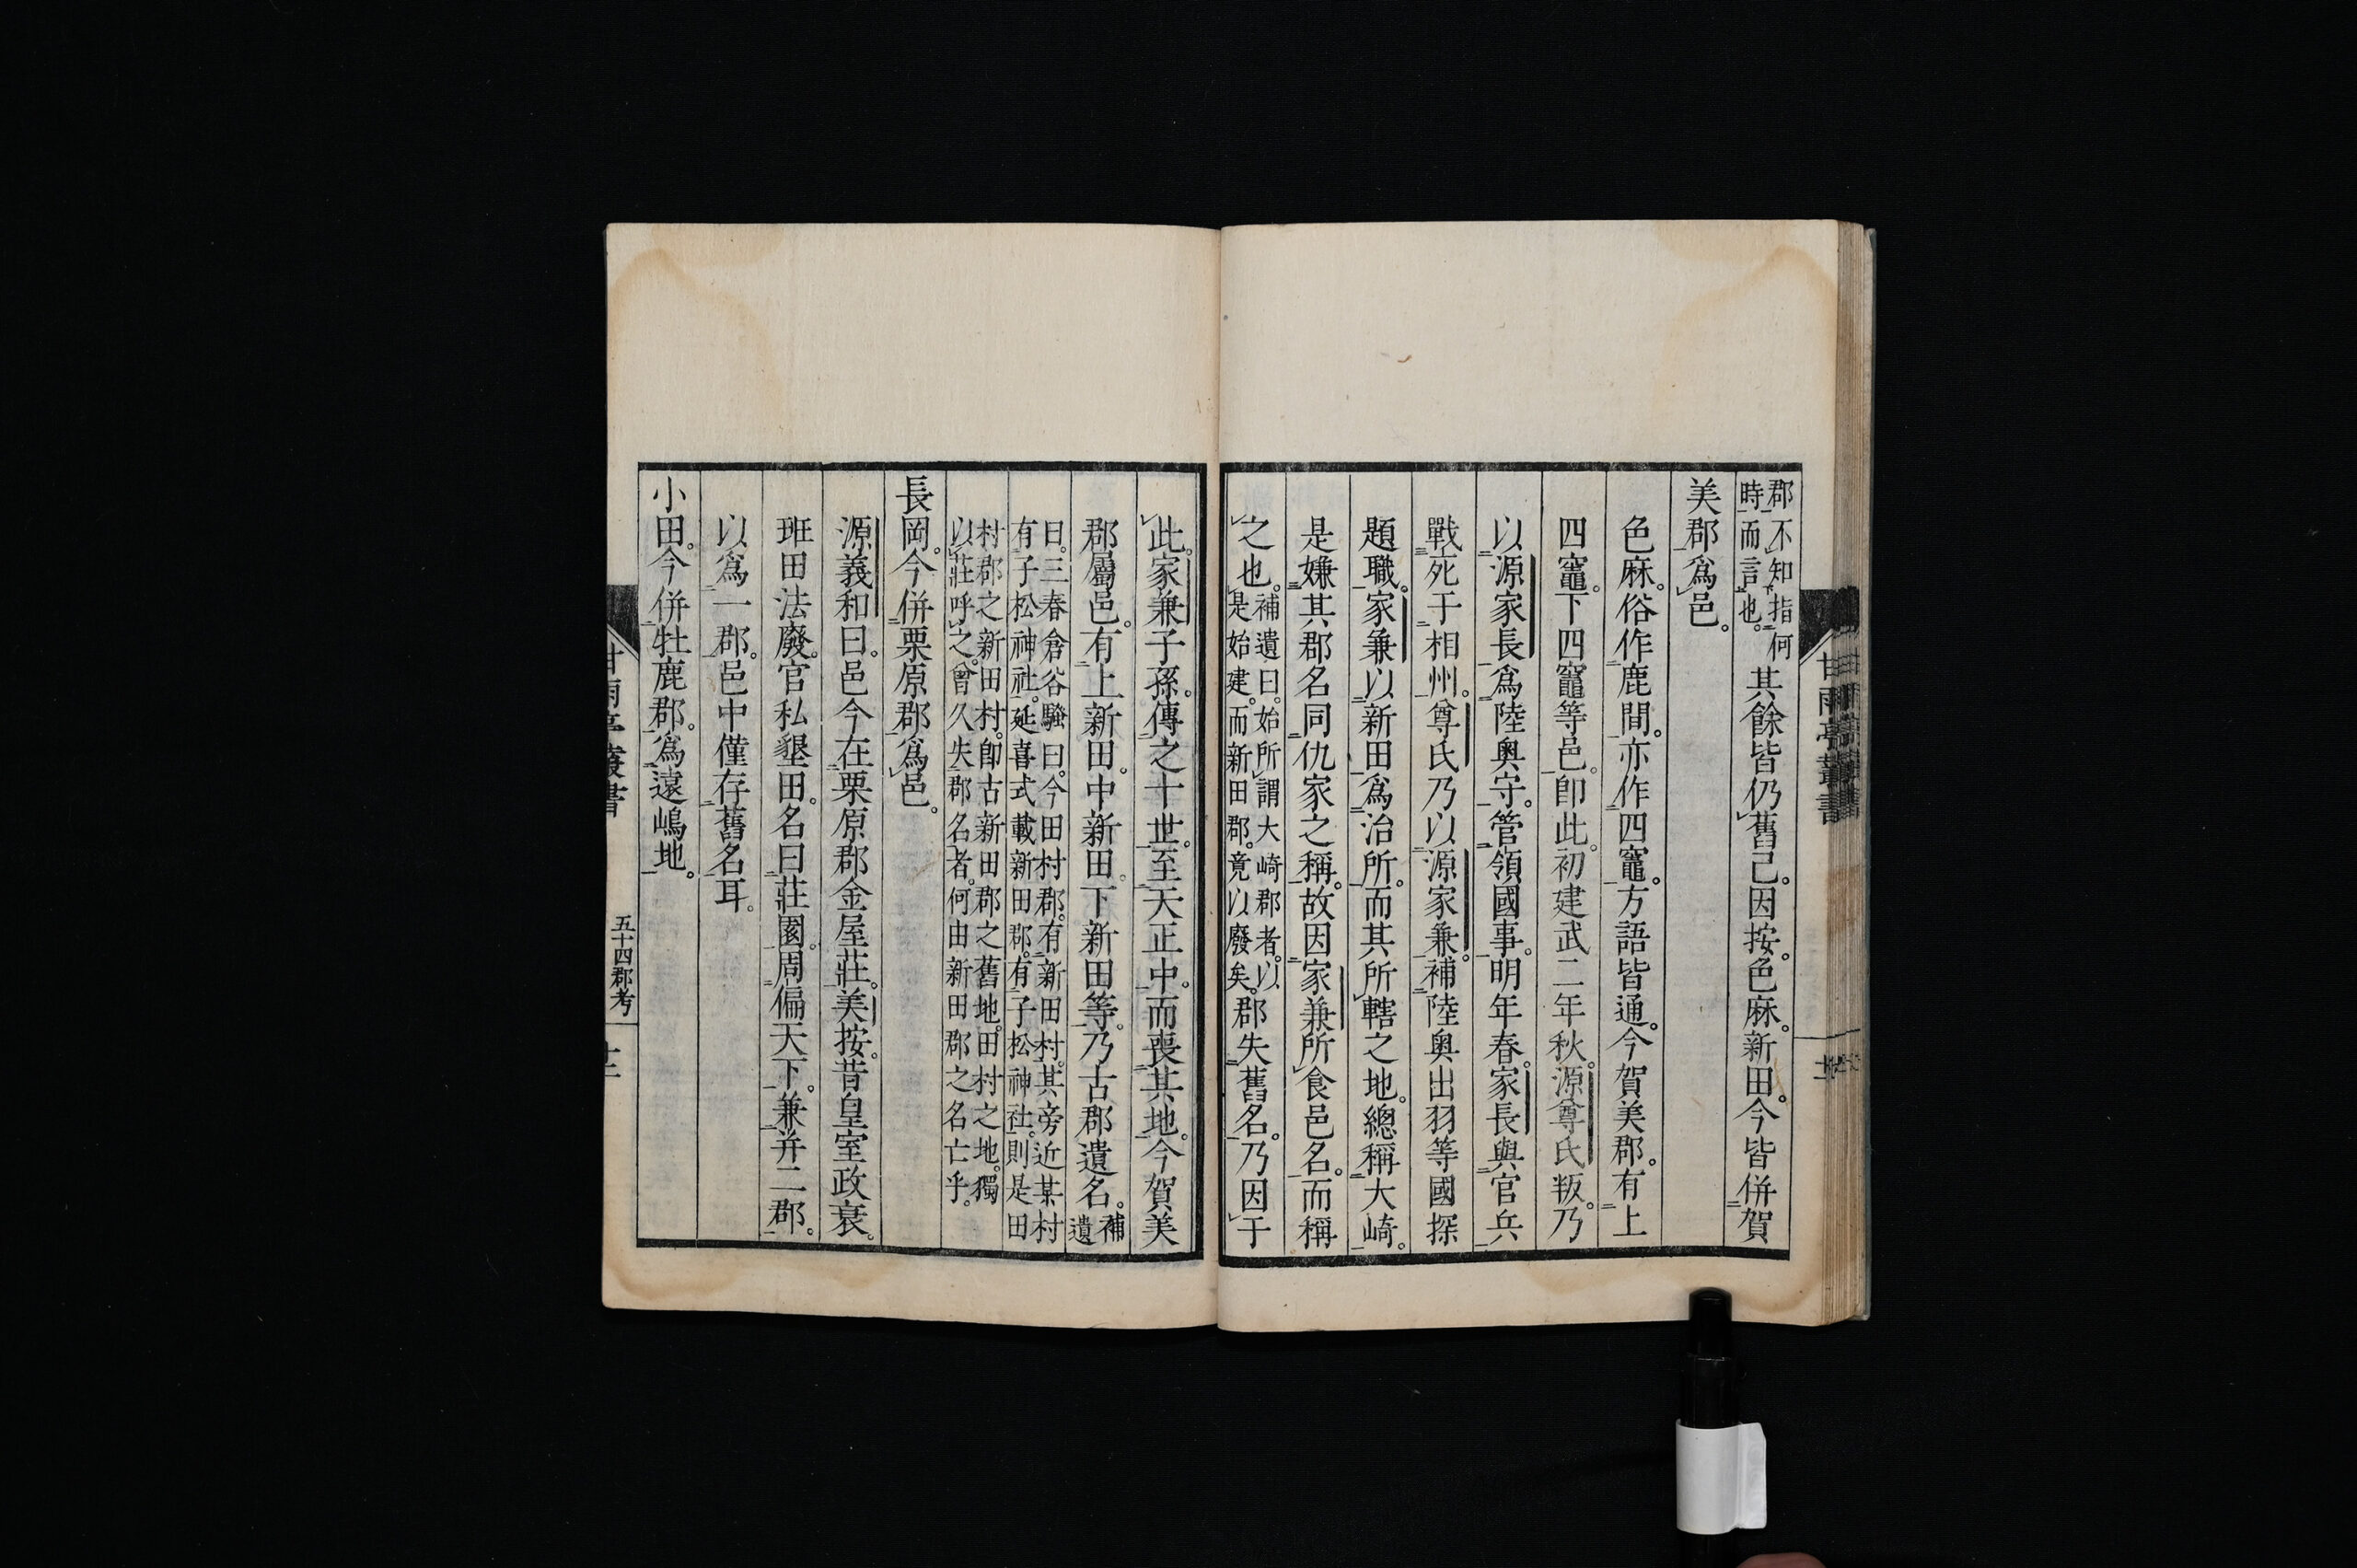 郡不知指何
時而言也。
其餘皆仍舊已。因按。色麻。新田。今皆併賀
美郡爲邑。
色麻。俗作鹿間。亦作四竈。方語皆通。今賀美郡。有上
四竈。下四竈等邑。卽此。初建武二年秋。源尊氏叛。乃
以源家長爲陸奥守。管領國事。明年春。家長與官兵
戰死于相州。尊氏乃以源家兼。補陸奥出羽等國探
題職。家兼以新田爲治所。而其所轄之地。總稱大崎。
是嫌其郡名同仇家之稱。故因家兼所食邑名。而稱
之也。
補遺曰。始所謂大崎郡者。以
是始建。而新田郡。竟以廢矣。
郡失舊名。乃因于
此。家兼子孫。傳之十世。至天正中。而喪其地。今賀美
郡屬邑。有上新田。中新田。下新田等。乃古郡遺名。
補
遺
曰。三春倉谷驗曰。今田村郡。有新田村。其旁近某村
有子松神社。延喜式載新田郡。有子松神社。則是田
村郡之新田村。卽古新田郡之舊地。田村之地。獨
以莊呼之。曾久失郡名者。何由新田郡之名亡乎。
長岡。今併栗原郡爲邑。
源義和曰。邑今在栗原郡金屋莊。美按。昔皇室政衰。
班田法廢。官私墾田。名曰莊園。周偏天下。兼并二郡。
以爲一郡。邑中僅存舊名耳。
小田。今併牡鹿郡。爲遠嶋地。
甘雨亭叢書
五十四郡考
十二
甘雨亭叢書